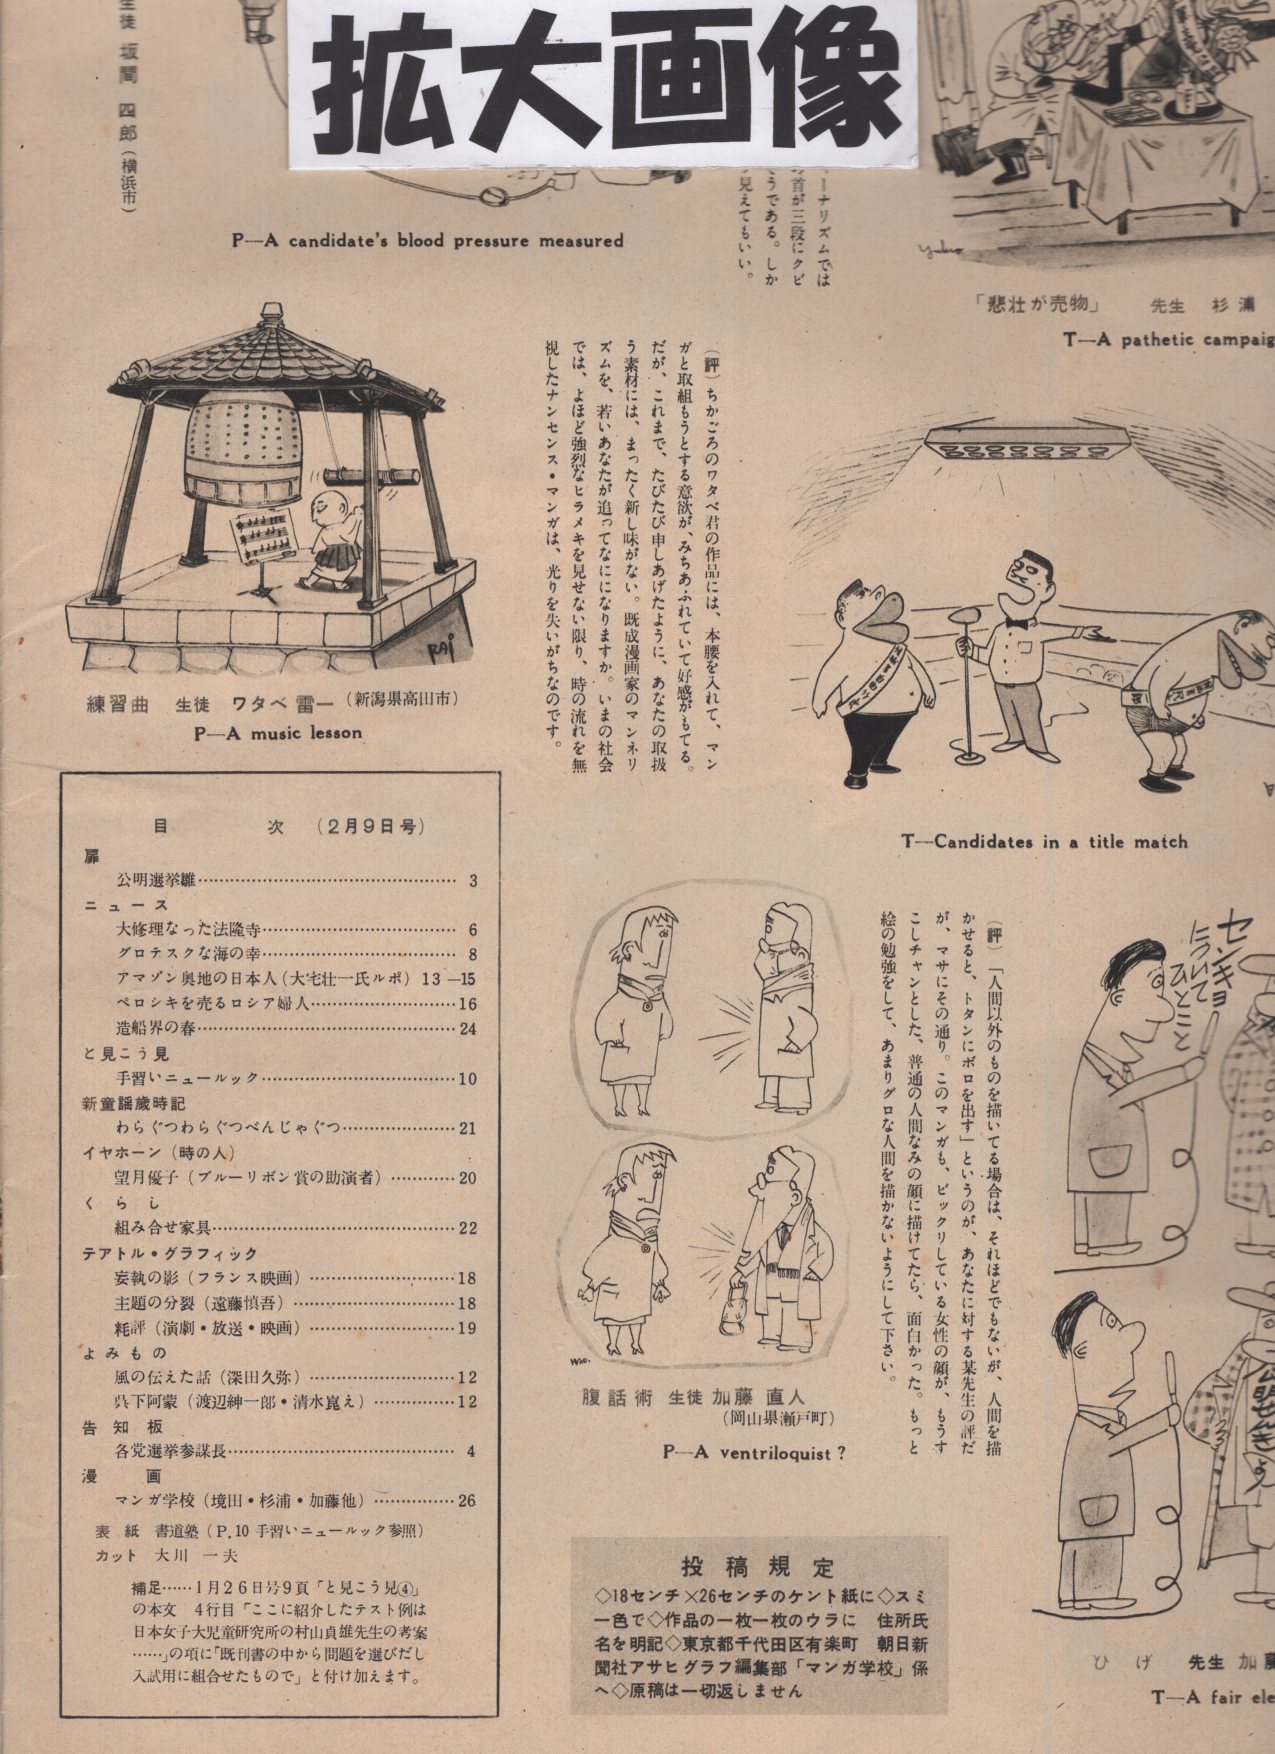 拡大画像
生徒 坂間 四郎(横浜市)
P—A candidate's blood pressure measured
ーナリズムでは
の首が三段にクビ
うである。しか
見えてもいい。
yukio
「悲壮が売物」 先生 杉浦
T—A pathetic campaig
RAi
練習曲 生徒 ワタベ 雷一(新潟県高田市)
P—A music lesson
(評)ちかごろのワタベ君の作品には、本腰を入れて、マン
ガと取組もうとする意欲が、みちあふれていて好感がもてる。
だが、これまで、たびたび申しあげたように、あなたの取扱
う素材には、まったく新し味がない。既成漫画家のマンネリ
ズムを、若いあなたが追ってなにになりますか。いまの社会
では、よほど強烈なヒラメキを見せない限り、時の流れを無
視したナンセンス・マンガは、光りを失いがちなのです。
T—Candidates in a title match
目 次 (2月9日号)
扉
公明選挙雛 3
ニュース
大修理なった法隆寺 6
グロテスクな海の幸 8
アマゾン奥地の日本人(大宅壮一氏ルポ) 13—15
ペロシキを売るロシア婦人 16
造船界の春 24
と見こう見
手習いニュールック 10
新童謡歳時記
わらぐつわらぐつべんじゃぐつ 21
イヤホーン(時の人)
望月優子(ブルーリボン賞の助演者) 20
くらし
組み合せ家具 22
テアトル・グラフィック
妄執の影(フランス映画) 18
主題の分裂(遠藤慎吾) 18
粍評(演劇・放送・映画) 19
よみもの
風の伝えた話(深田久弥) 12
呉下阿蒙(渡辺紳一郎・清水崑え) 12
告知板
各党選挙参謀長 4
漫画
マンガ学校(境田・杉浦・加藤他) 26
表紙 書道塾(P.10 手習いニュールック参照)
カット 大川 一夫
補足……1月26日号9頁「と見こう見④」
の本文 4行目「ここに紹介したテスト例は
日本女子大児童研究所の村山貞雄先生の考案
……」の項に「既刊書の中から問題を選びだし
入試用に組合せたもので」と付け加えます。
(評)「人間以外のものを描いてる場合は、それほどでもないが、人間を描
かせると、トタンにボロを出す」というのが、あなたに対する某先生の評だ
が、マサにその通り。このマンガも、ビックリしている女性の顔が、もうす
こしチャンとした、普通の人間なみの顔に描けてたら、面白かった。もっと
絵の勉強をして、あまりグロな人間を描かないようにして下さい。
腹話術 生徒 加藤 直人
(岡山県瀬戸町)
P—A ventriloquist?
センキョ
について
ひとこと
投稿規定
◇18センチ×26センチのケント紙に◇スミ
一色で◇作品の一枚一枚のウラに 住所氏
名を明記◇東京都千代田区有楽町 朝日新
聞社アサヒグラフ編集部「マンガ学校」係
へ◇原稿は一切返しません
ひげ 先生 加藤
T—A fair ele